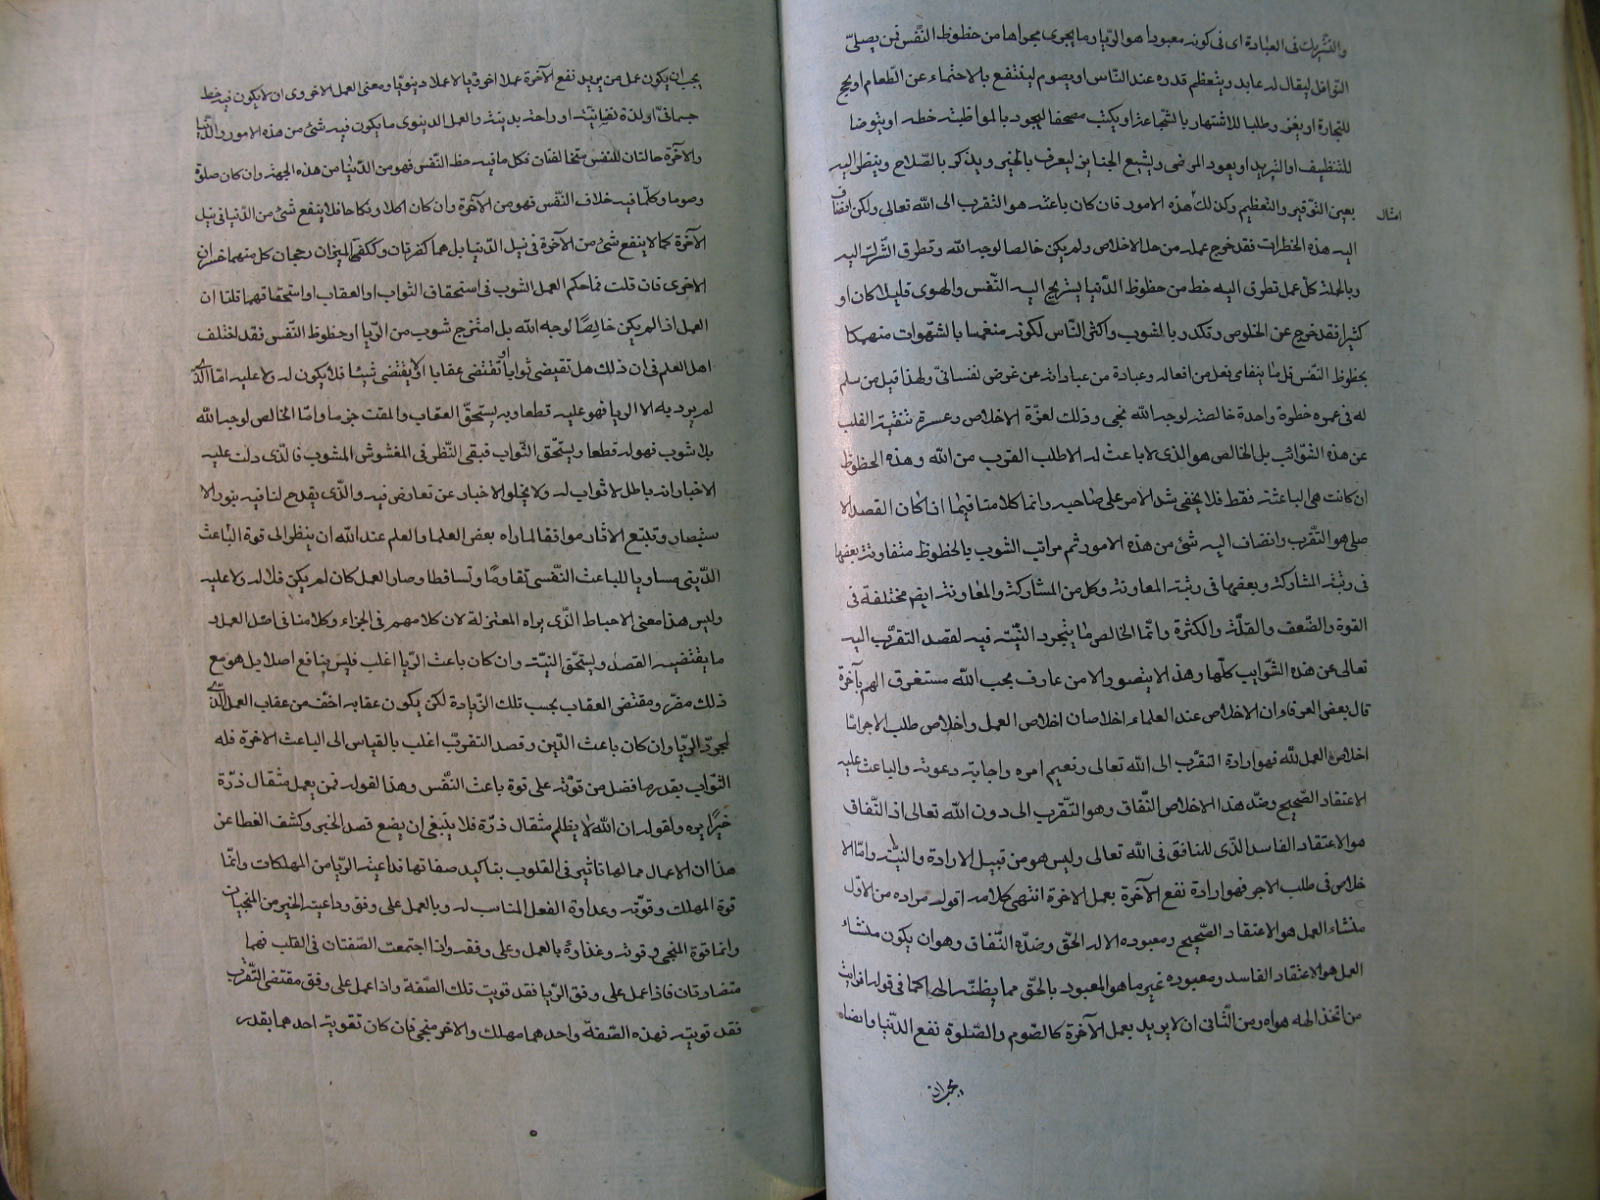 والتشريك فى العبادة اى فى كونه معبودا هو الريا وما يجرى مجراها من حظوظ النفس فمن يصلى
النوافل ليقال له عابد ويتعظم قدره عند الناس او يصوم لينتفع بالاحتماء عن الطعام او يحج
للتجارة او يغزى وطلبا للاشتهار بالشجاعة او يكتب مصحفا ليجود بالمواظبة خطه او يتوضا
للتنظيف او التبريد او يعود المرضى ويشيع الجنايز ليعرف بالخير ويذكر بالصلاح وينظر اليه
بعين التوقير والتعظيم وكذلك هذه الامور فان كان باعثه هو التقرب الى الله تعالى ولكن انضاف
امثال
اليه هذه الخطرات فقد خرج عمله من حد الاخلاص ولم يكن خالصا لوجه الله وتطرق الشرك اليه
وبالجملة كل عمل تطرق اليه خط من حظوظ الدنيا يستريح اليه النفس والهوى قليلا كان او
كثيرا فقد خرج عن الخلوص وتكدر بالشوب واكثر الناس لكونه منغمسا بالشهوات منهمكا
بحظوظ النفس قل ما ينفاى بفعل من افعاله وعبادة من عباداته عن غرض نفسانى ولهذا قيل من سلم
له فى عمره خطوة واحدة خالصة لوجه الله نجى وذلك لعزة الاخلاص وعسرة تنقية القلب
عن هذه الشوائب بل الخالص هو الذى لا باعث له الا طلب القرب من الله وهذه الحظوظ
ان كانت هى الباعثة فقط فلا يخفى شد الامر على صاحبه وانما كلامنا فيما اذا كان القصد الا
صلى هو التقرب وانضاف اليه شئ من هذه الامور ثم مراتب الشوب بالحظوظ متفاوتة بعضها
فى رتبة المشاركة وبعضها فى رتبة المعاونة وكل من المشاركة والمعاونة ايضم مختلفة فى
القوة والضعف والقلة والكثرة وانما الخالص ما يتجرد النية فيه لقصد التقرب اليه
تعالى عن هذه الشوايب كلها وهذا لا يتصور الا من عارف محب الله مستغرق الهم بآخرة
قال بعض العرفاء ان الاخلاص عند العلماء اخلاصان اخلاص العمل واخلاص طلب الاجر اما
اخلاص العمل لله فهو ارادة التقرب الى الله تعالى وتعظيم امره واجابة دعوته والباعث عليه
الاعتقاد الصحيح وضد هذا الاخلاص النفاق وهو التقرب الى دون الله تعالى اذ النفاق
هو الاعتقاد الفاسد الذى للمنافق فى الله تعالى وليس هو من قبيل الارادة والنية واما الا
خلاص فى طلب الاجر فهو ارادة نفع الآخرة بعمل الاخرة انتهى كلامه اقول مراده من الاول
منشاء العمل هو الاعتقاد الصحيح ومعبوده الاله الحق وضده النفاق وهو ان يكون منشاء
العمل هو الاعتقاد الفاسد ومعبوده غير ما هو المعبود بالحق مما يظنه الها كما فى قوله افرايت
من اتخذ الهه هواه ومن الثانى ان لا يريد بعمل الآخرة كالصوم والصلوة نفع الدنيا وايضاه
يجب ان
يجب ان يكون عمل من يريد نفع الآخرة عملا اخرويا لا عملا دينويا ومعنى العمل الاخروى ان لا يكون فيه خط
جسمانى او لذة نفسانية او راحة بدنية والعمل الدينوى ما يكون فيه شئ من هذه الامور والدنيا
والآخرة حالتان للنفس متخالفتان فكل ما فيه حظ النفس فهو من الدنيا من هذه الجهة وان كان صلوة
وصوما وكلما فيه خلاف النفس فهو من الآخرة وان كان اكلا ونكاحا فلا ينفع شئ من الدنيا فى نيل
الآخرة كما لا ينفع شئ من الآخرة فى نيل الدنيا بل هما كفرقان وككفتى الميزان رجحان كل منهما خسران
الاخرى فان قلت فما حكم العمل الشوب فى استحقاق الثواب او العقاب او استحقاقهما قلنا ان
العمل اذا لم يكن خالصا لوجه الله بل امتزج شوب من الريا او حظوظ النفس فقد اختلف
اهل العلم فى ان ذلك هل تقتضى ثوابا او تقتضى عقابا او لا يقتضى شيئا فلا يكون له ولا عليه اما الذى
لم يرد به الا الريا فهو عليه قطعا وبه يستحق العقاب والمقت جزما واما الخالص لوجه الله
بلا شوب فهو له قطعا ويستحق الثواب فبقى النظر فى المغشوش المشوب فالذى دلت عليه
الاخبار انه باطل لا ثواب له ولا يخلو الاخبار عن تعارض فيه والذى يقدح لنا فيه بنور الا
ستبصار وتتبع الاثار موافقا لما راه بعض العلما والعلم عند الله ان ينظر الى قوة الباعث
الدينى مساويا للباعث النفسى تقاوما وتساقطا وصار العمل كان لم يكن فلا له ولا عليه
وليس هذا معنى الاحباط الذى يراه المعتزلة لان كلامهم فى الجزاء وكلامنا فى اصل العمل و
ما يقتضيه القصد ويستحق النية وان كان باعث الريا اغلب فليس بنافع اصلا بل هو مع
ذلك مضر ومقتضى العقاب بحسب تلك الزيادة لكن يكون عقابه اخف من عقاب العمل الذى
لمجرد الريا وان كان باعث الدين وقصد التقرب اغلب بالقياس الى الباعث الاخرة فله
الثواب بقدر ما فضل من قوته على قوة باعث النفس وهذا لقوله فمن يعمل مثقال ذرة
خيرا يره ولقوله ان الله لا يظلم مثقال ذرة فلا ينبغى ان يضع قصد الخير وكشف الغطا عن
هذا ان الاعمال مما لها تاثير فى القلوب بتاكيد صفاتها فداعية الريا من المهلكات وانما
قوة المهلك وقوته وعداوة الفعل المناسب له وبالعمل على وفق وداعية الخير من المنجيات
وانما قوة المنجى وقوته وغذاوة بالعمل وعلى وفقه واذا اجتمعت الصفتان فى القلب فهما
متضاوتان فاذا عمل على وفق الريا فقد قويت تلك الصفة واذا عمل على وفق مقتضى التقرب
فقد قويت فهذه الصفة واحدهما مهلك والاخر منجى فان كان تقوية احدهما بقدر